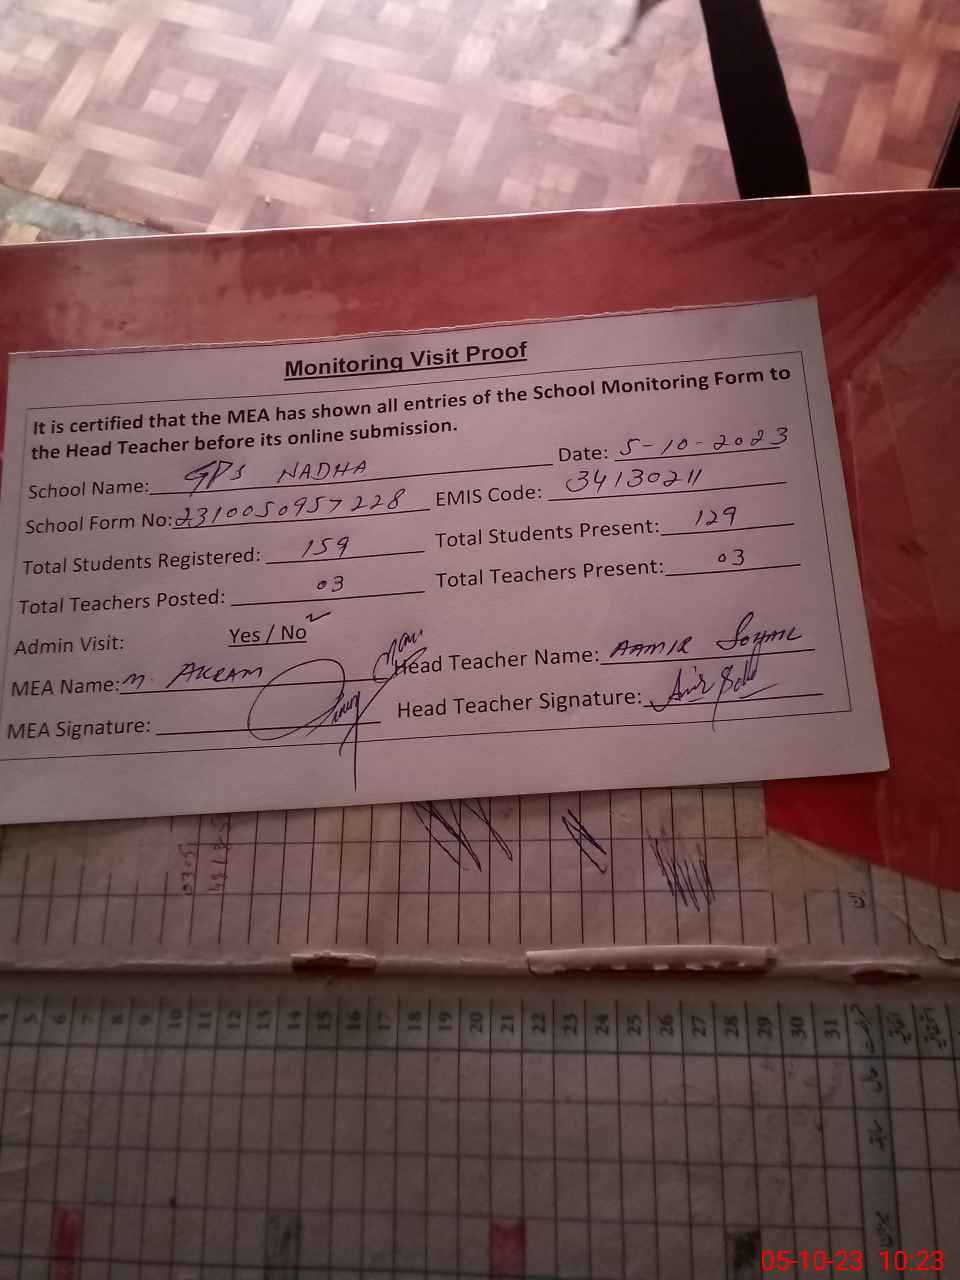 Monitoring Visit Proof
It is certified that the MEA has shown all entries of the School Monitoring Form to
the Head Teacher before its online submission.
School Name: GPS NADHA Date: 5-10-2023
School Form No: 2310050957228 EMIS Code: 34130211
Total Students Registered: 159 Total Students Present: 129
Total Teachers Posted: 03 Total Teachers Present: 03
Admin Visit: Yes / No
MEA Name: M. AKRAM Head Teacher Name: AAMIR
MEA Signature: Head Teacher Signature:
4 5 6 7 8 9 10 11 12 13 14 15 16 17 18 19 20 21 22 23 24 25 26 27 28 29 30 31
05-10-23 10:23